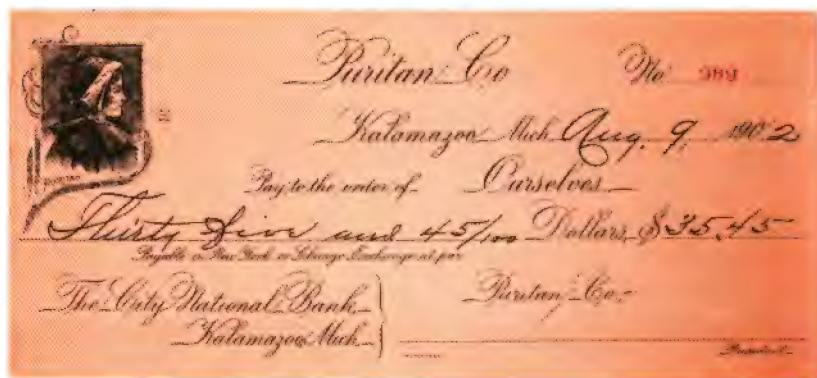 Puritan Co No. 989
Kalamazoo Mich Aug. 9, 1902
Pay to the order of Ourselves
Thirty Five and 45/100 Dollars, $35.45
Payable in New York or Chicago Exchange at par
The City National Bank
Kalamazoo, Mich.
Puritan Co.
President